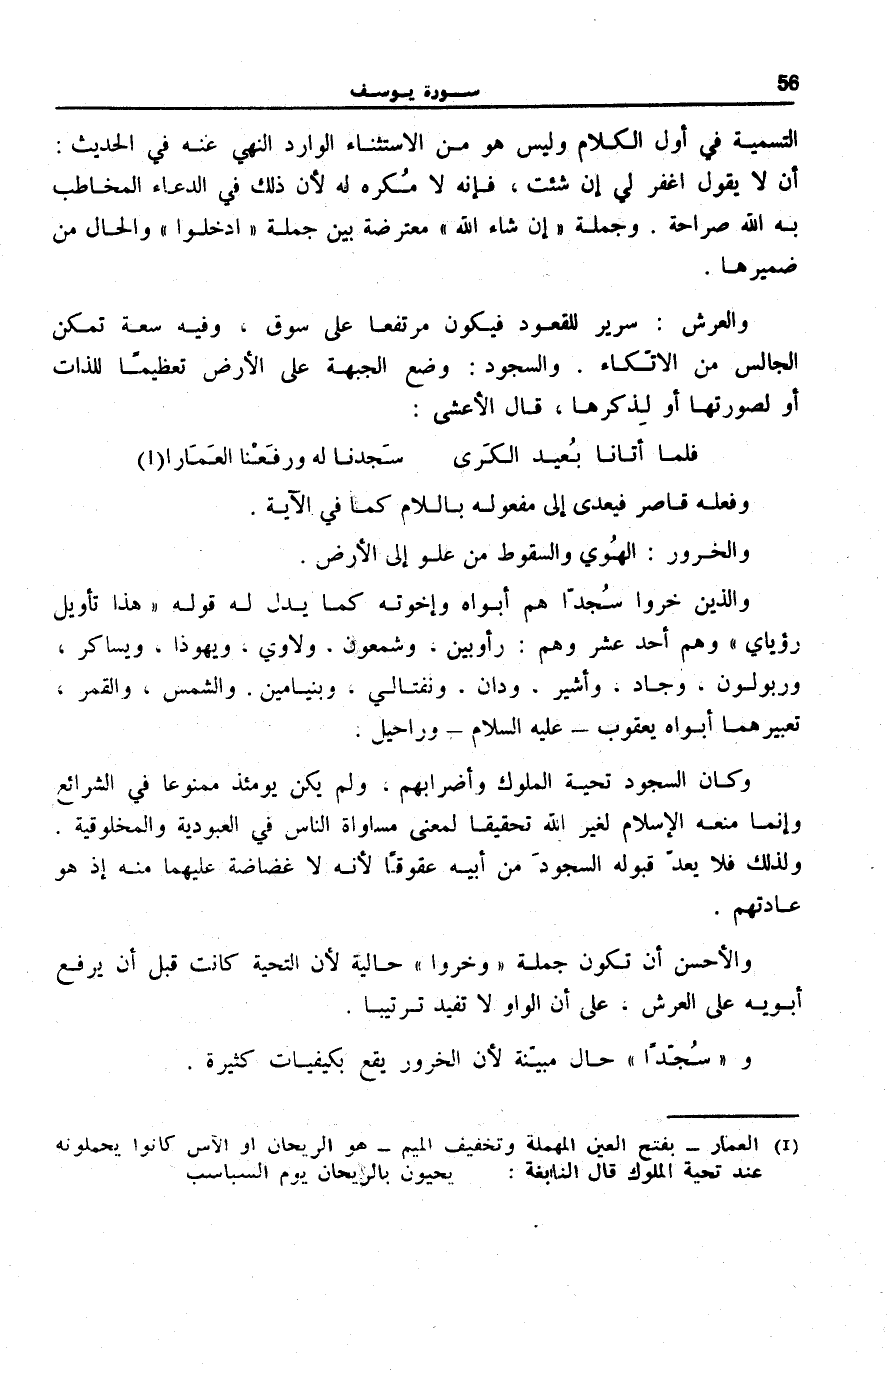 56
سورة يوسف
التسمية في أول الكلام وليس هو من الاستثناء الوارد النهي عنه في الحديث :
أن لا يقول اغفر لي إن شئت ، فإنه لا مُكره له لأن ذلك في الدعاء المخاطب
به الله صراحة . وجملة « إن شاء الله » معترضة بين جملة « ادخلوا » والحال من
ضميرها .
والعرش : سرير للقعود فيكون مرتفعا على سوق ، وفيه سعة تمكن
الجالس من الاتّكاء . والسجود : وضع الجبهة على الأرض تعظيمًا للذات
أو لصورتها أو لِذكرها ، قال الأعشى :
فلما أتانا بُعيد الكَرى سَجدنا له ورفَعْنا العَمَارا(I)
وفعله قاصر فيعدى إلى مفعوله باللام كما في الآية .
والخرور : الهُوي والسقوط من علو إلى الأرض .
والذين خروا سُجدًا هم أبواه وإخوته كما يدل له قوله « هذا تأويل
رؤياي » وهم أحد عشر وهم : رأوبين ، وشمعون . ولاوي ، ويهوذا ، ويساكر ،
وربولون ، وجاد ، وأشير . ودان . ونفتالي ، وبنيامين . والشمس ، والقمر ،
تعبيرهما أبواه يعقوب – عليه السلام – وراحيل .
وكان السجود تحية الملوك وأضرابهم ، ولم يكن يومئذ ممنوعا في الشرائع
وإنما منعه الإسلام لغير الله تحقيقا لمعنى مساواة الناس في العبودية والمخلوقية .
ولذلك فلا يعدّ قبوله السجودَ من أبيه عقوقًا لأنه لا غضاضة عليهما منه إذ هو
عادتهم .
والأحسن أن تكون جملة « وخروا » حالية لأن التحية كانت قبل أن يرفع
أبويه على العرش ، على أن الواو لا تفيد ترتيبا .
و « سُجّدًا » حال مبيّنة لأن الخرور يقع بكيفيات كثيرة .
(I) العمار – بفتح العين المهملة وتخفيف الميم – هو الريحان او الآس كانوا يحملونه
عند تحية الملوك قال النابغة : يحيون بالريحان يوم السباسب